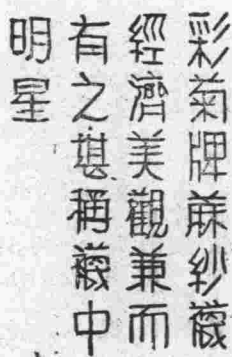 彩菊牌蔴紗襪
經濟美觀兼而
有之堪稱襪中
明星